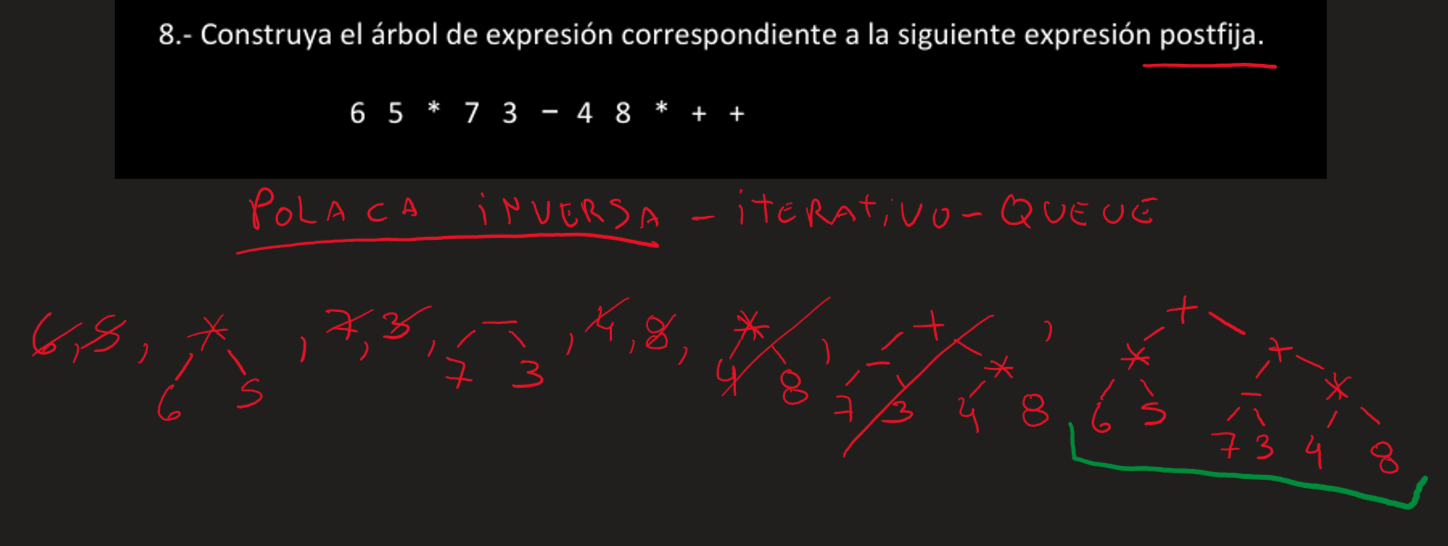 8.- Construya el árbol de expresión correspondiente a la siguiente expresión postfija.
6 5 * 7 3 − 4 8 * + +
POLACA iNVERSA - iTERATiVO - QUEUE
6, 5, * , 7, 3, − , 4, 8, * , + , +
* +
− * − *
6 5 7 3 4 8 7 3 4 8 6 5 7 3 4 8